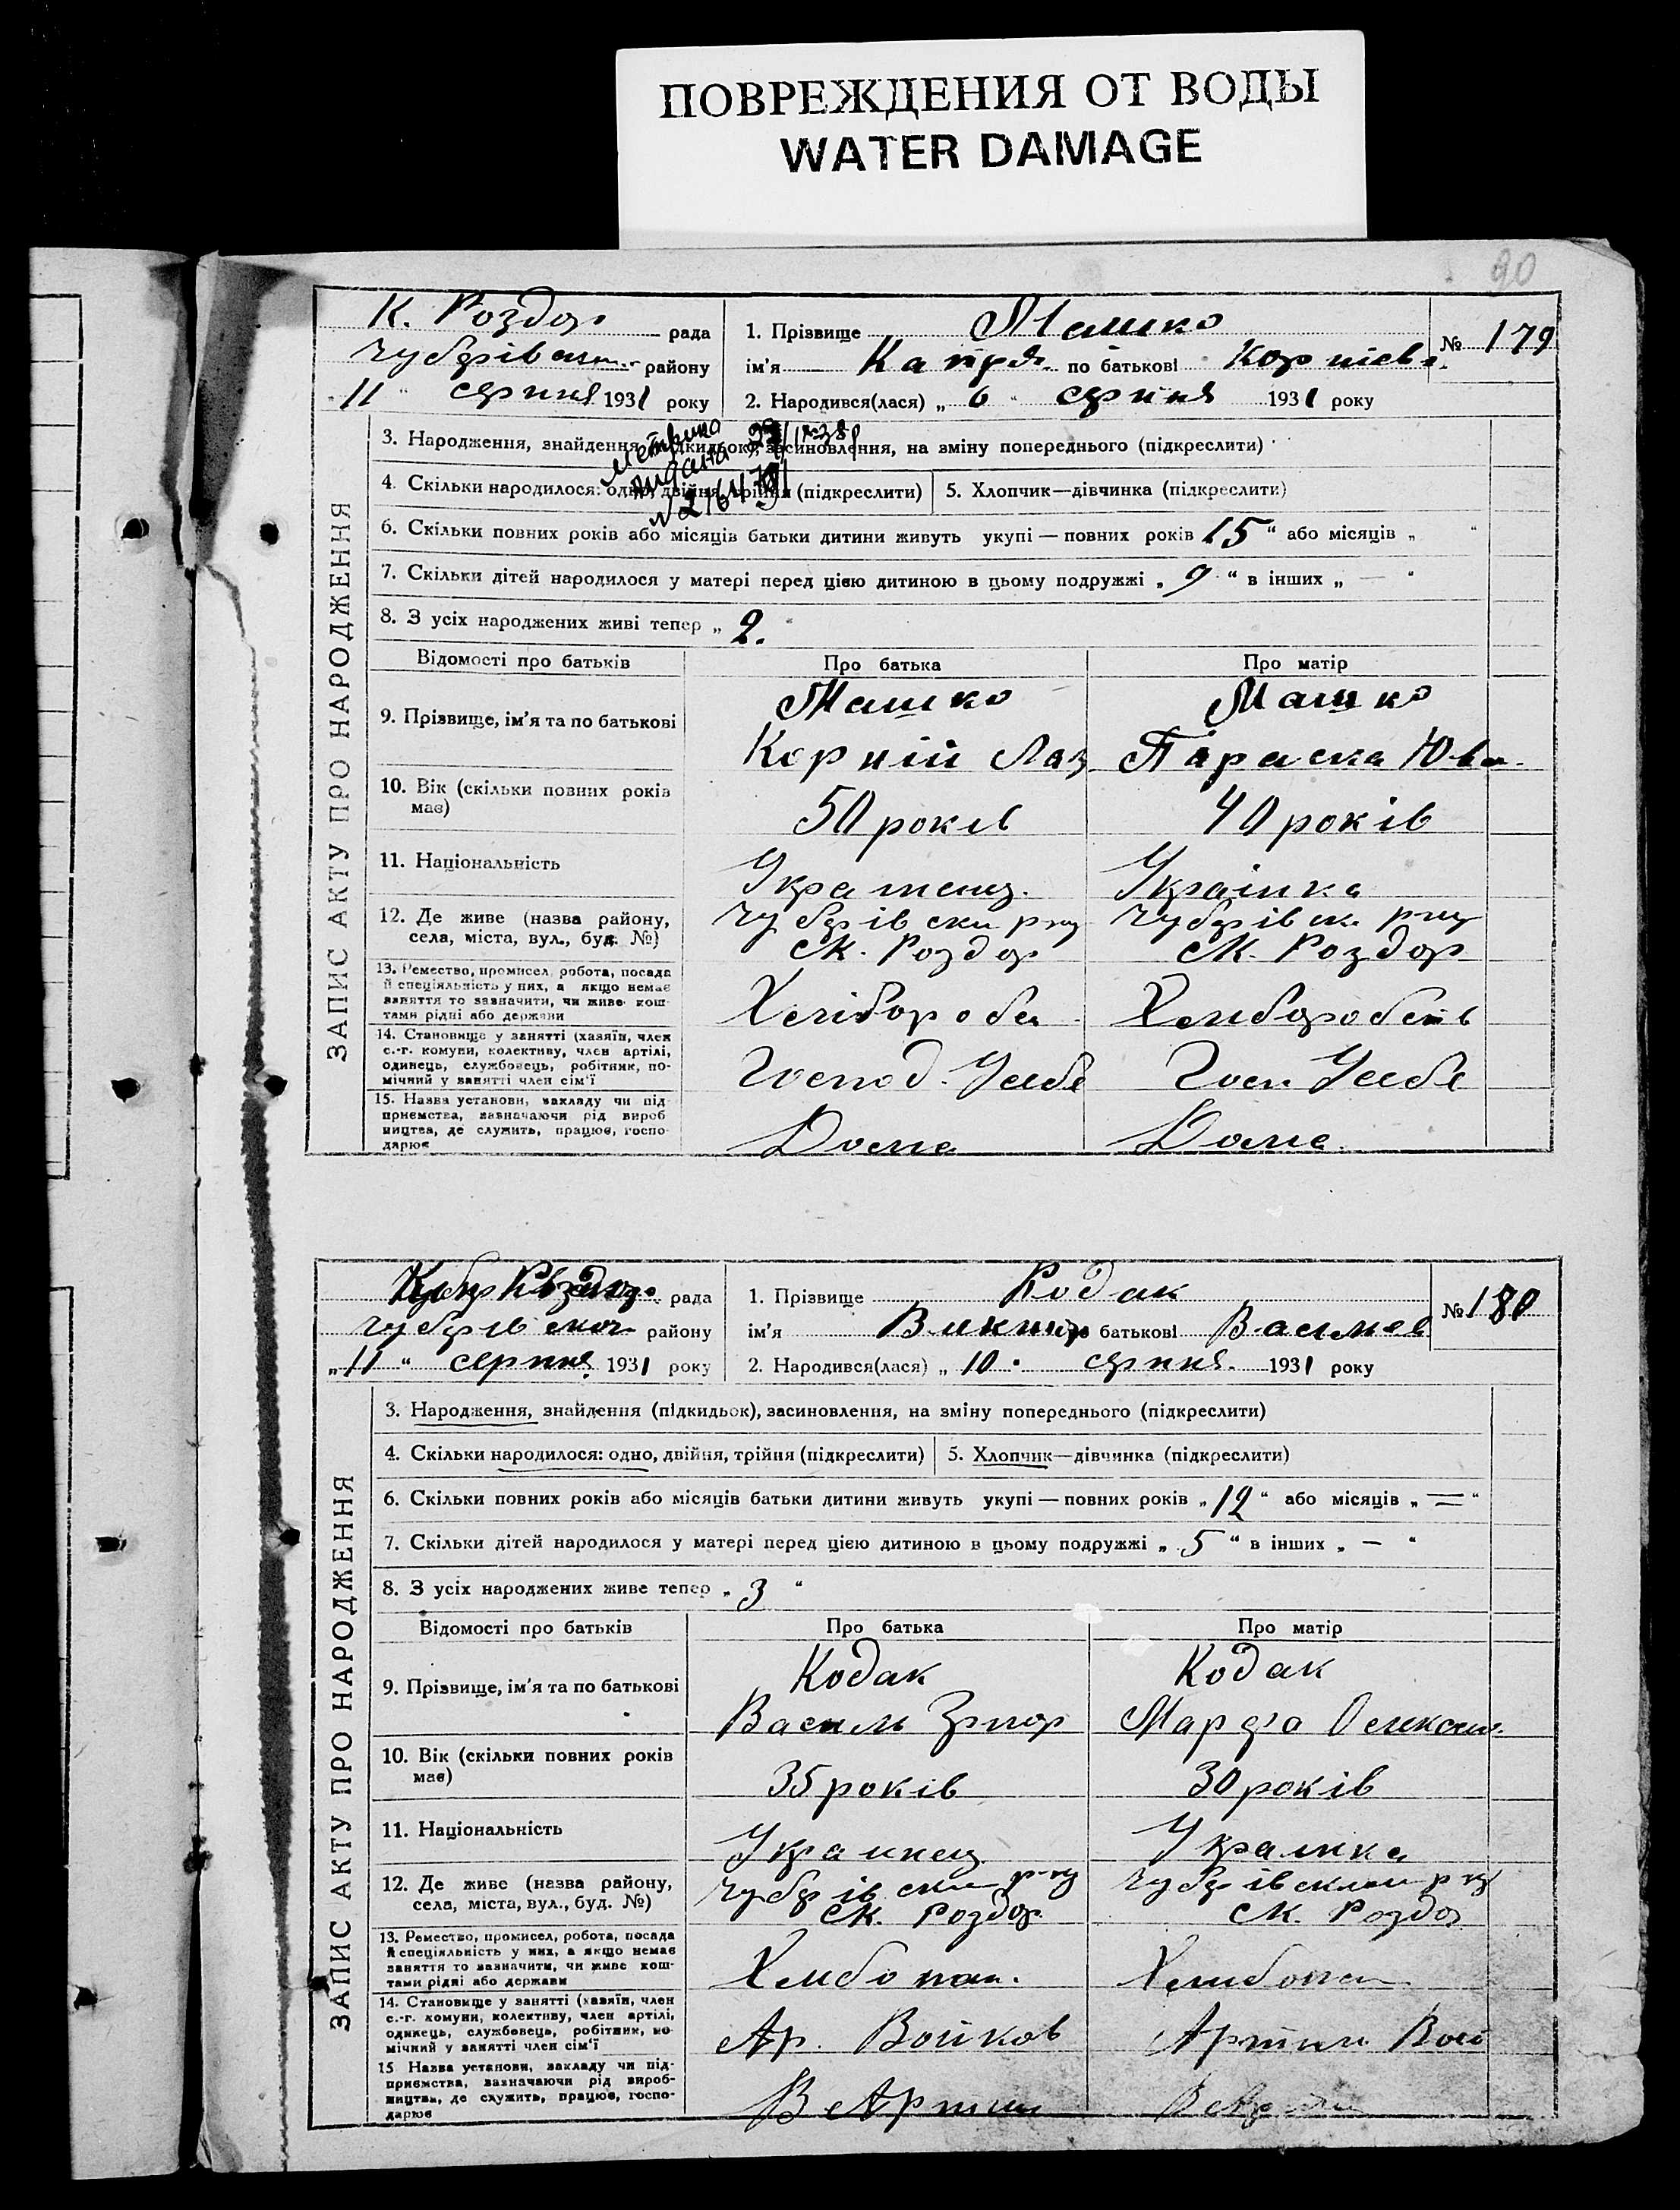 ПОВРЕЖДЕНИЯ ОТ ВОДЫ
WATER DAMAGE
90
К. Роздор рада
Чубарівськ. району
11 " серпня 1931 року
1. Прізвище Машко
ім'я Катря по батькові Корнієв.
№ 179
2. Народився(лася) „ 6 " серпня 1931 року
ЗАПИС АКТУ ПРО НАРОДЖЕННЯ
3. Народження, знайдення (підкидьок), засиновлення, на зміну попереднього (підкреслити)
Метрика
видана
4. Скільки народилося: одно, двійня, трійня (підкреслити)
5. Хлопчик—дівчинка (підкреслити)
6. Скільки повних років або місяців батьки дитини живуть укупі — повних років 15 “ або місяців „ “
7. Скільки дітей народилося у матері перед цією дитиною в цьому подружжі „ 9 “ в інших „ — “
8. З усіх народжених живі тепер „ 2. “
Відомості про батьків
Про батька
Про матір
9. Прізвище, ім'я та по батькові
Машко
Корній Лаз
Машко
Параска Юва.
10. Вік (скільки повних років
має)
50 років
40 років
11. Національність
Українець
Українка
12. Де живе (назва району,
села, міста, вул., буд. №)
Чубарівськи р-ну
см. Роздор
Чубарівськ. р-ну
см. Роздор
13. Ремество, промисел, робота, посада
й спеціяльність у них, а якщо немає
заняття то зазначити, чи живе кош-
тами рідні або держави
Хлібороба
14. Становище у занятті (хазяїн, член
с.-г. комуни, колективу, член артілі,
одинець, службовець, робітник, по-
мічний у занятті член сім'ї
Господ. Усебе
Госп. Усебе
15. Назва установи, закладу чи під-
приємства, зазначаючи рід вироб-
ництва, де служить, працює, госпо-
дарює
Дома
Дома.
рада
Чубарівської району
„ 11 “ серпня 1931 року
1. Прізвище Кодак
ім'я Виктор по батькові Васильев
№ 180
2. Народився(лася) „ 10 " серпня. 1931 року
ЗАПИС АКТУ ПРО НАРОДЖЕННЯ
3. Народження, знайдення (підкидьок), засиновлення, на зміну попереднього (підкреслити)
4. Скільки народилося: одно, двійня, трійня (підкреслити)
5. Хлопчик—дівчинка (підкреслити)
6. Скільки повних років або місяців батьки дитини живуть укупі — повних років „ 12 “ або місяців „ = “
7. Скільки дітей народилося у матері перед цією дитиною в цьому подружжі „ 5 “ в інших „ — “
8. З усіх народжених живе тепер „ 3 “
Відомості про батьків
Про батька
Про матір
9. Прізвище, ім'я та по батькові
Кодак
Василь Григор
Кодак
Марфа Олексан.
10. Вік (скільки повних років
має)
35 років
30 років
11. Національність
Украинец
Украинка
12. Де живе (назва району,
села, міста, вул., буд. №)
Чубарівськи р-ну
см. Роздор
Чубарівским р-ну
см. Роздор
13. Ремество, промисел, робота, посада
й спеціяльність у них, а якщо немає
заняття то зазначити, чи живе кош-
тами рідні або держави
14. Становище у занятті (хазяїн, член
с.-г. комуни, колективу, член артілі,
одинець, службовець, робітник, по-
мічний у занятті член сім'ї
Ар. Войков
Артіли Вой
15 Назва установи, закладу чи під-
приємства, зазначаючи рід вироб-
ництва, де служить, працює, госпо-
дарює
В Артили